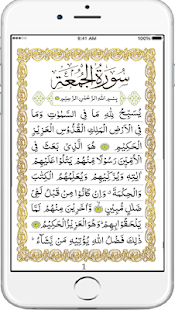 9:41 AM
سورة الجمعة
بِسْمِ اللَّهِ الرَّحْمَٰنِ الرَّحِيمِ
يُسَبِّحُ لِلَّهِ مَا فِي السَّمَٰوَٰتِ وَمَا
فِي الْأَرْضِ الْمَلِكِ الْقُدُّوسِ الْعَزِيزِ
الْحَكِيمِ هُوَ الَّذِي بَعَثَ فِي
الْأُمِّيِّنَ رَسُولًا مِّنْهُمْ يَتْلُوا عَلَيْهِمْ
ءَايَٰتِهِ وَيُزَكِّيهِمْ وَيُعَلِّمُهُمُ الْكِتَٰبَ
وَالْحِكْمَةَ وَإِن كَانُوا مِن قَبْلُ لَفِي
ضَلَٰلٍ مُّبِينٍ وَءَاخَرِينَ مِنْهُمْ لَمَّا
يَلْحَقُوا بِهِمْ وَهُوَ الْعَزِيزُ الْحَكِيمُ
ذَٰلِكَ فَضْلُ اللَّهِ يُؤْتِيهِ مَن يَشَاءُ
1